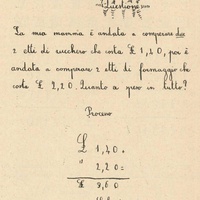 Questione
La mia mamma è andata a comperare due
2 etti di zucchero che costa £ 1,40, poi è
andata a comperare 2 etti di formaggio che
costa £ 2,20. Quanto a speso in tutto?
Processo
£ 1,40 +
" 2,20 =
£ 3,60